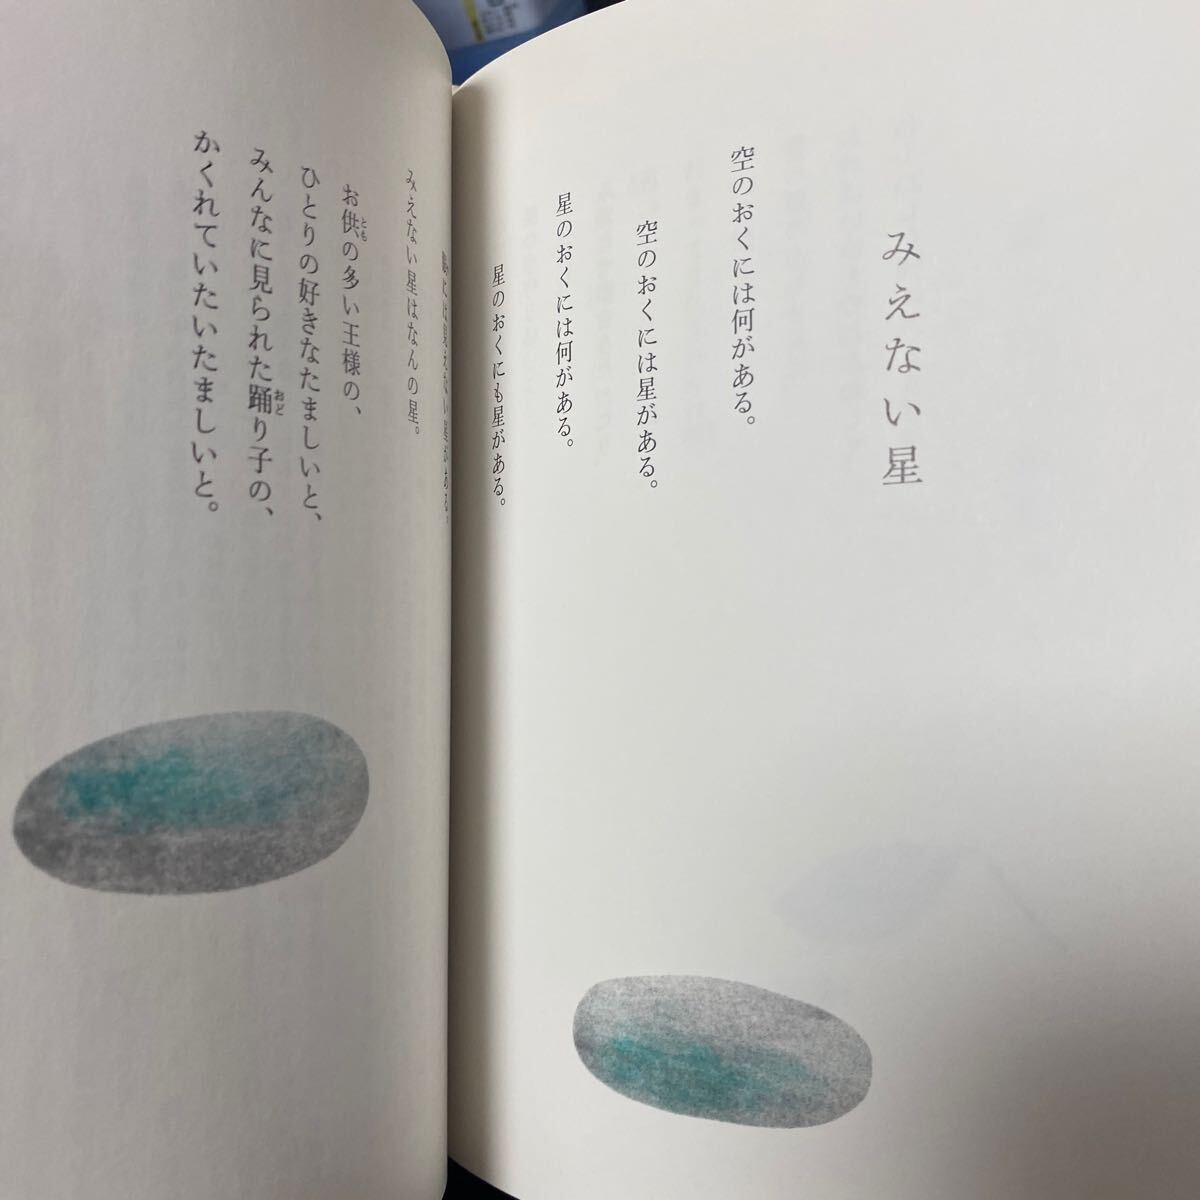 みえない星
空のおくには何がある。
空のおくには星がある。
星のおくには何がある。
星のおくにも星がある。
眼には見えない星がある。
みえない星はなんの星。
お供の多い王様の、
ひとりの好きなたましいと、
みんなに見られた踊り子の、
かくれていたいたましいと。